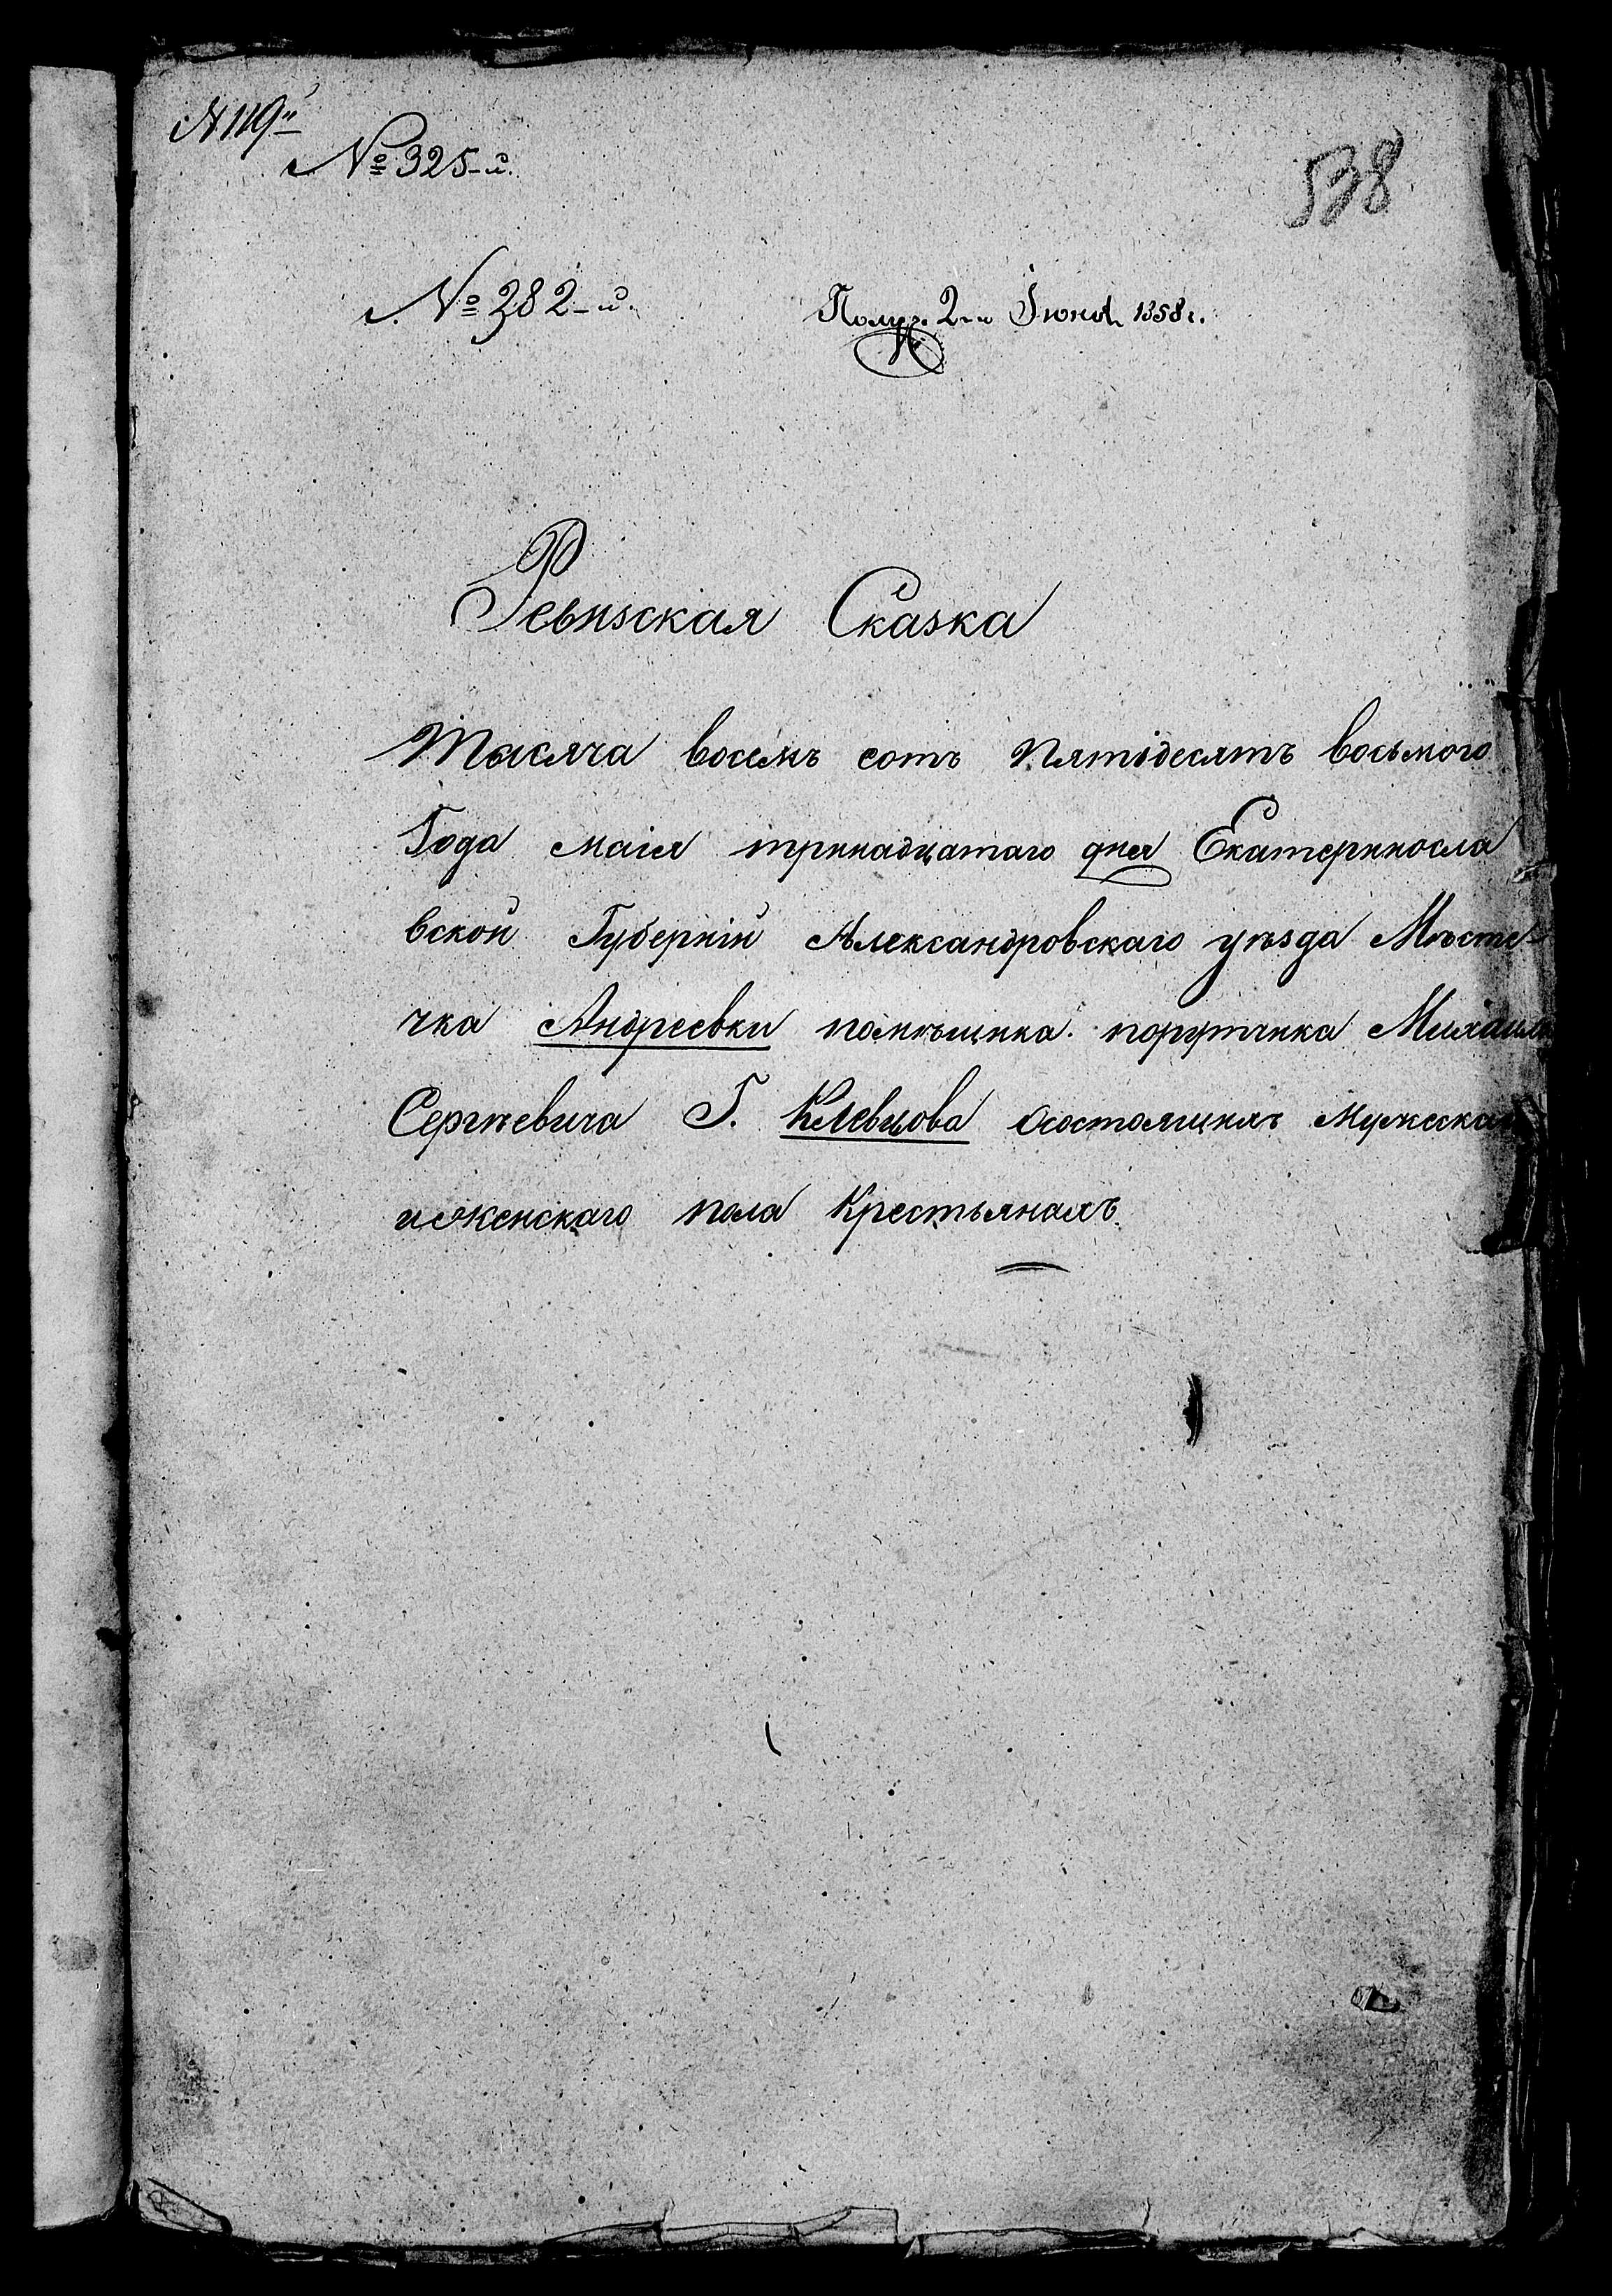 № 119й
№ 325-й.
538
№ 282-й.
Получ. 2-го Іюня 1858 г.
Ревизская Сказка
Тысяча восемь сотъ пятідесятъ восьмого
Года маія тринадцатаго дня Екатериносла
вской Губерніи Александровскаго уѣзда Мѣсте-
чка Андреевки помѣщика порутчика Михаила
Сергѣевича Г. Клевцова осостоящихъ Мужескаго
иженскаго пола Крестьянахъ.